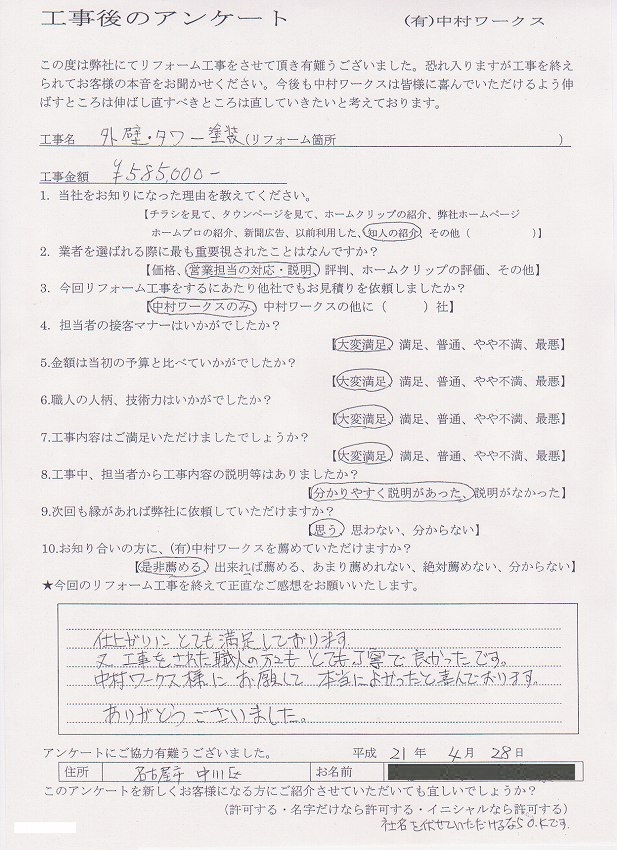 工事後のアンケート (有)中村ワークス
この度は弊社にてリフォーム工事をさせて頂き有難うございました。恐れ入りますが工事を終え
られてお客様の本音をお聞かせください。今後も中村ワークスは皆様に喜んでいただけるよう伸
ばすところは伸ばし直すべきところは直していきたいと考えております。
工事名 外壁・タワー塗装(リフォーム箇所 )
工事金額 ¥585,000-
1. 当社をお知りになった理由を教えてください。
【チラシを見て、タウンページを見て、ホームクリップの紹介、弊社ホームページ
ホームプロの紹介、新聞広告、以前利用した、知人の紹介、その他( )】
2. 業者を選ばれる際に最も重要視されたことはなんですか?
【価格、営業担当の対応・説明、評判、ホームクリップの評価、その他】
3. 今回リフォーム工事をするにあたり他社でもお見積りを依頼しましたか?
【中村ワークスのみ、中村ワークスの他に( )社】
4. 担当者の接客マナーはいかがでしたか?
【大変満足、満足、普通、やや不満、最悪】
5.金額は当初の予算と比べていかがでしたか?
【大変満足、満足、普通、やや不満、最悪】
6.職人の人柄、技術力はいかがでしたか?
【大変満足、満足、普通、やや不満、最悪】
7.工事内容はご満足いただけましたでしょうか?
【大変満足、満足、普通、やや不満、最悪】
8.工事中、担当者から工事内容の説明等はありましたか?
【分かりやすく説明があった、説明がなかった】
9.次回も縁があれば弊社に依頼していただけますか?
【思う、思わない、分からない】
10.お知り合いの方に、(有)中村ワークスを薦めていただけますか?
【是非薦める、出来れば薦める、あまり薦めれない、絶対薦めない、分からない】
★今回のリフォーム工事を終えて正直なご感想をお願いいたします。
仕上がりにとても満足しております。
又、工事をされた職人の方もとても丁寧で良かったです。
中村ワークス様にお願して本当によかったと喜んでおります。
ありがとうございました。
アンケートにご協力有難うございました。 平成 21 年 4 月 28 日
住所 名古屋市 中川区 お名前
このアンケートを新しくお客様になる方にご紹介させていただいても宜しいでしょうか?
(許可する・名字だけなら許可する・イニシャルなら許可する)
社名を伏せていただけるならO.Kです。